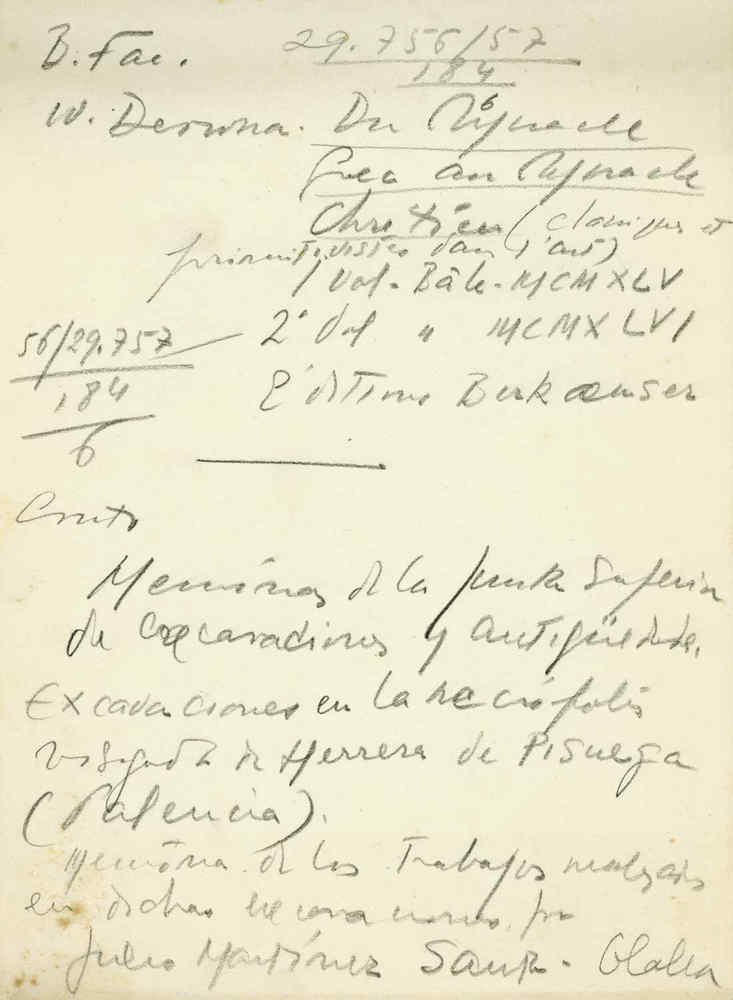 B. Fac. 29.756/57
184
6
W. Deronna. Du Miracle
Grec au Miracle
Chrétien (classiques et
primitivistes dans l'art)
1 Vol. Bâle. MCMXLV
56/29.757 2º Vol " MCMXLVI
184
6
Editions Birkaeuser
Memórias de la Junta Superior
de Excavaciones y Antigüedades.
Excavaciones en la necrópolis
visigoda de Herrera de Pisuerga
(Palencia).
Memória de los Trabajos realizados
en dichas excavaciones por
Julio Martínez Santa-Olalla